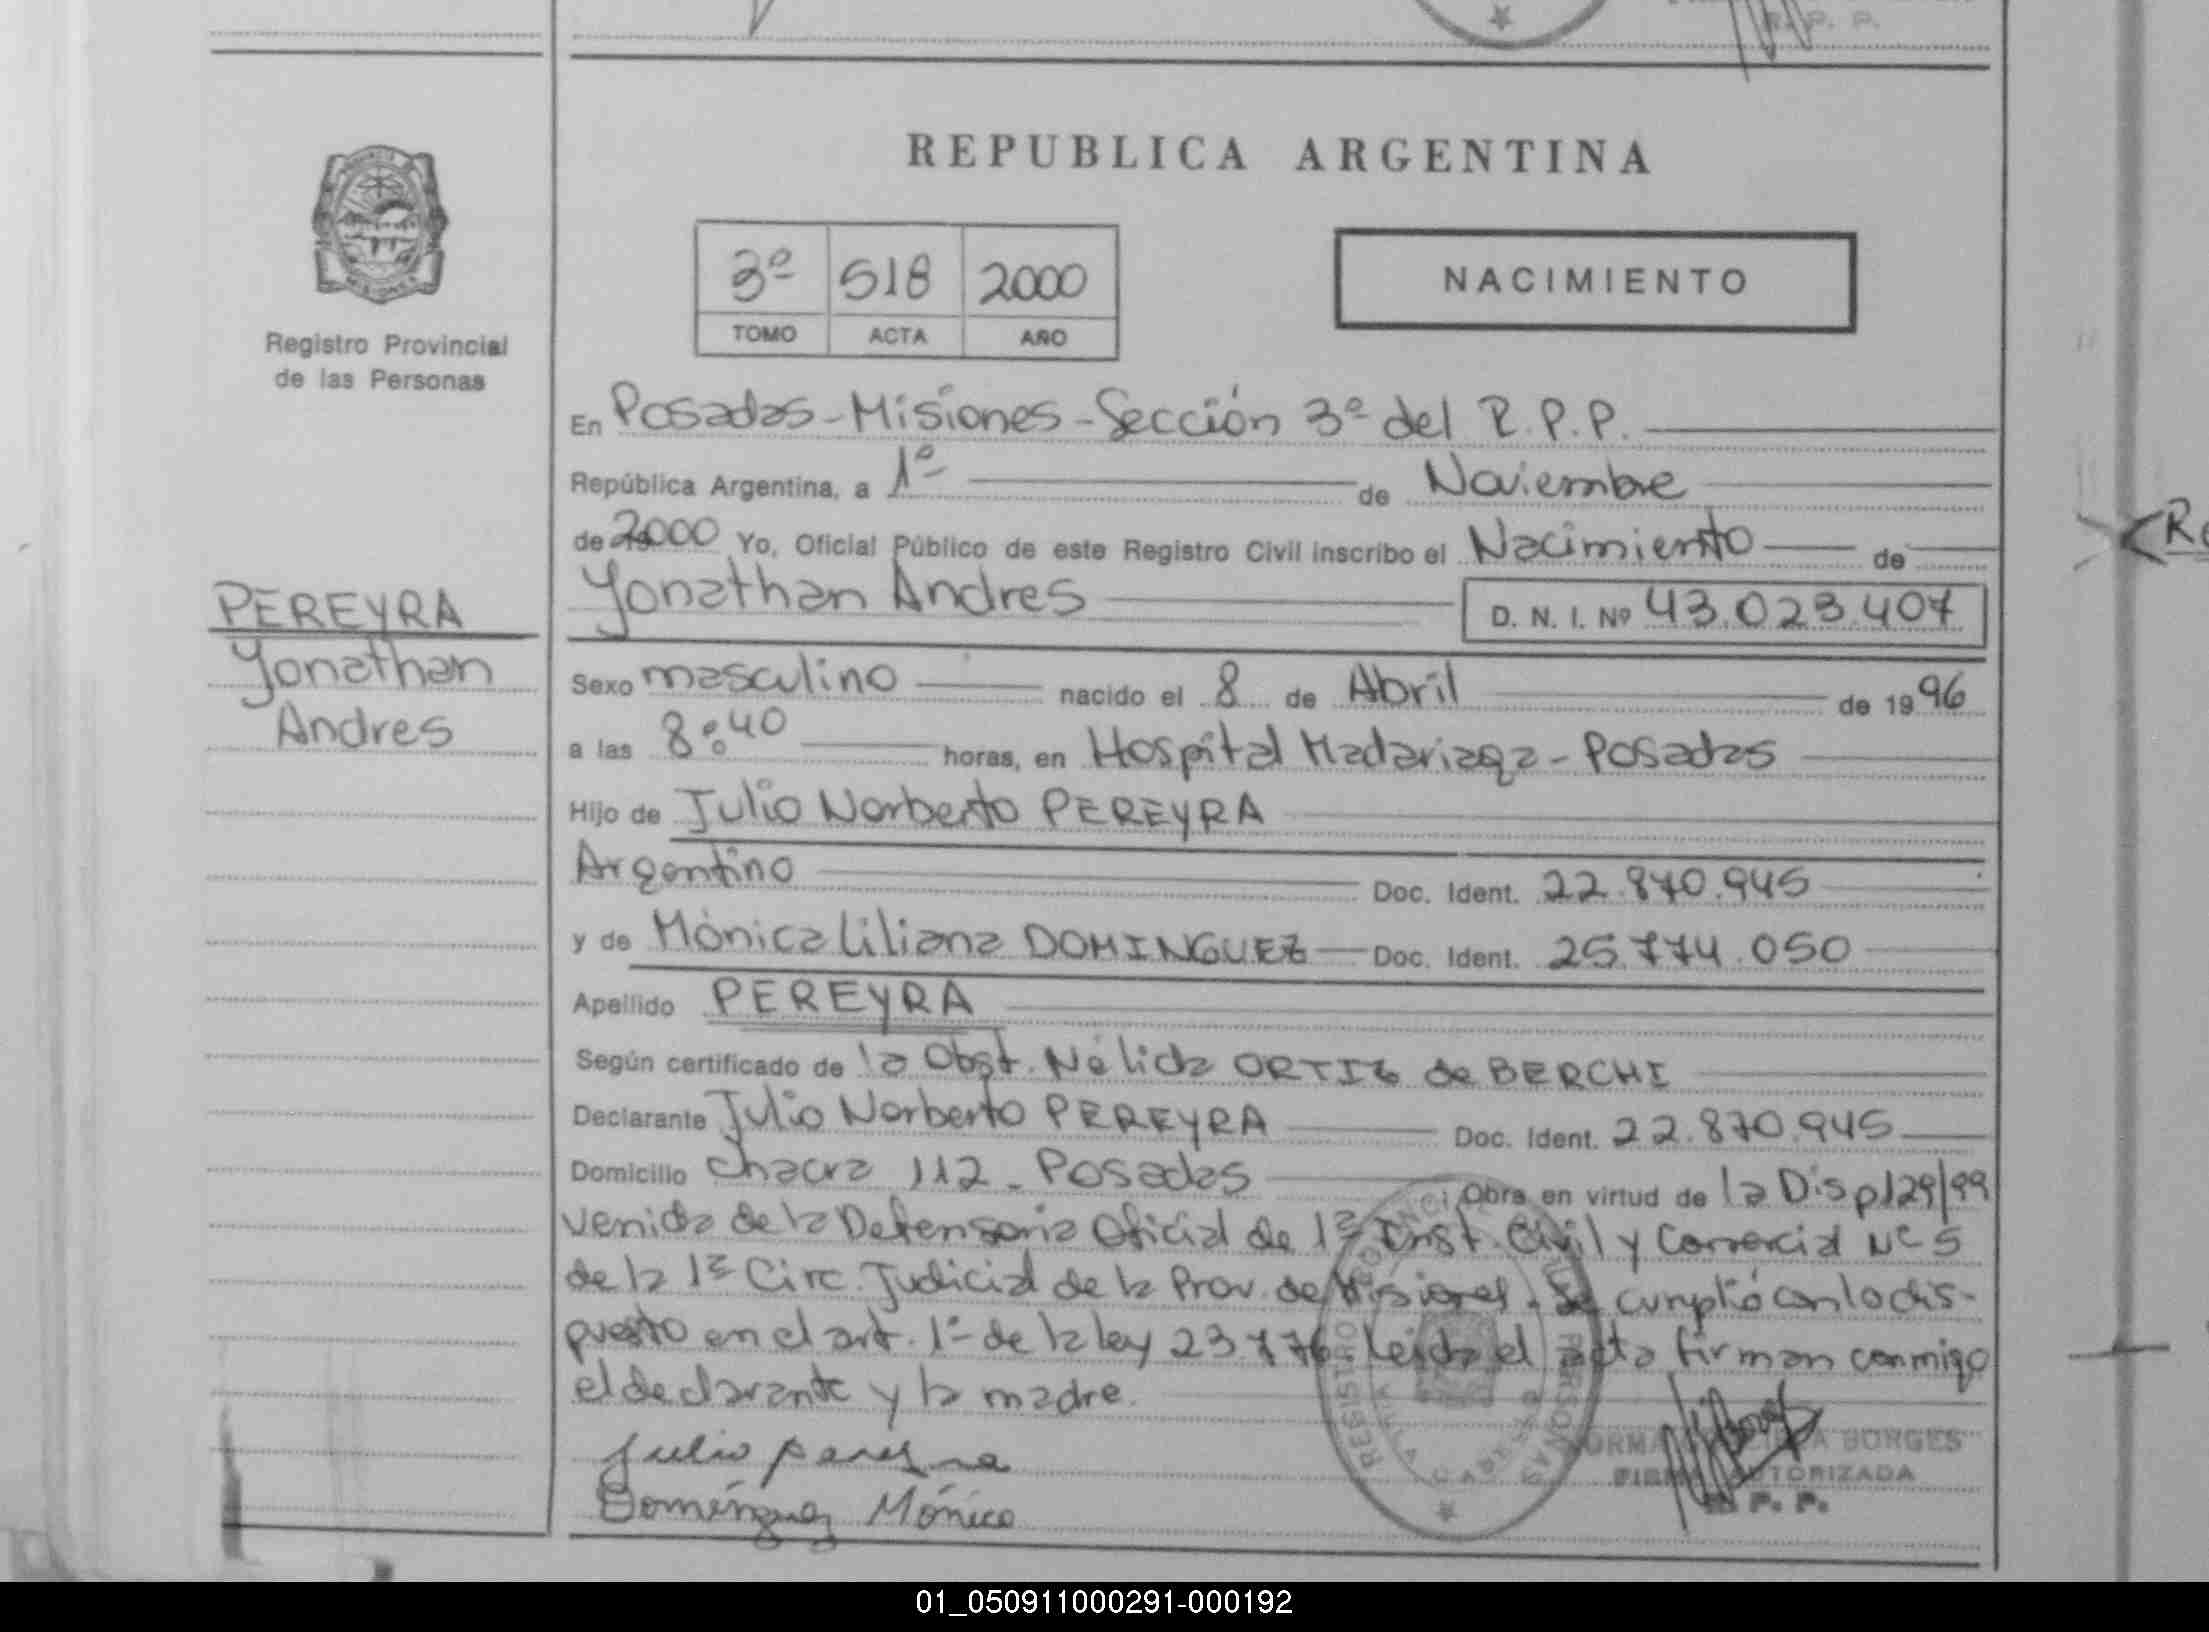 R. P. P.
REPUBLICA ARGENTINA
3º 518 2000
TOMO ACTA AÑO
NACIMIENTO
Registro Provincial
de las Personas
En Posadas-Misiones-Sección 3ª del R.P.P.
República Argentina, a 1º de Noviembre
de 2000 Yo, Oficial Público de este Registro Civil inscribo el Nacimiento de
Yonathan Andres D. N. I. Nº 43.023.407
PEREYRA
Yonathan
Andres
Sexo masculino nacido el 8 de Abril de 1996
a las 8:40 horas, en Hospital Madariaga-Posadas
Hijo de Julio Norberto PEREYRA
Argentino Doc. Ident. 22.870.945
y de Mónica Liliana DOMINGUEZ Doc. Ident. 25.774.050
Apellido PEREYRA
Según certificado de la Obst. Nélida ORTIZ de BERCHI
Declarante Julio Norberto PEREYRA Doc. Ident. 22.870.945
Domicilio Chacra 112 - Posadas Obra en virtud de la Disp 129/99
venida de la Defensoria Oficial de 1ª Inst. Civil y Comercial Nº 5
de la 1ª Circ. Judicial de la Prov. de Misiones. Se cumplió con lo dis-
puesto en el art. 1º de la ley 23.776. Leida el acta firman conmigo
el declarante y la madre.
Julio Pereyra
Domínguez Mónica
BORGES
FIRMA AUTORIZADA
R. P. P.
01_050911000291-000192